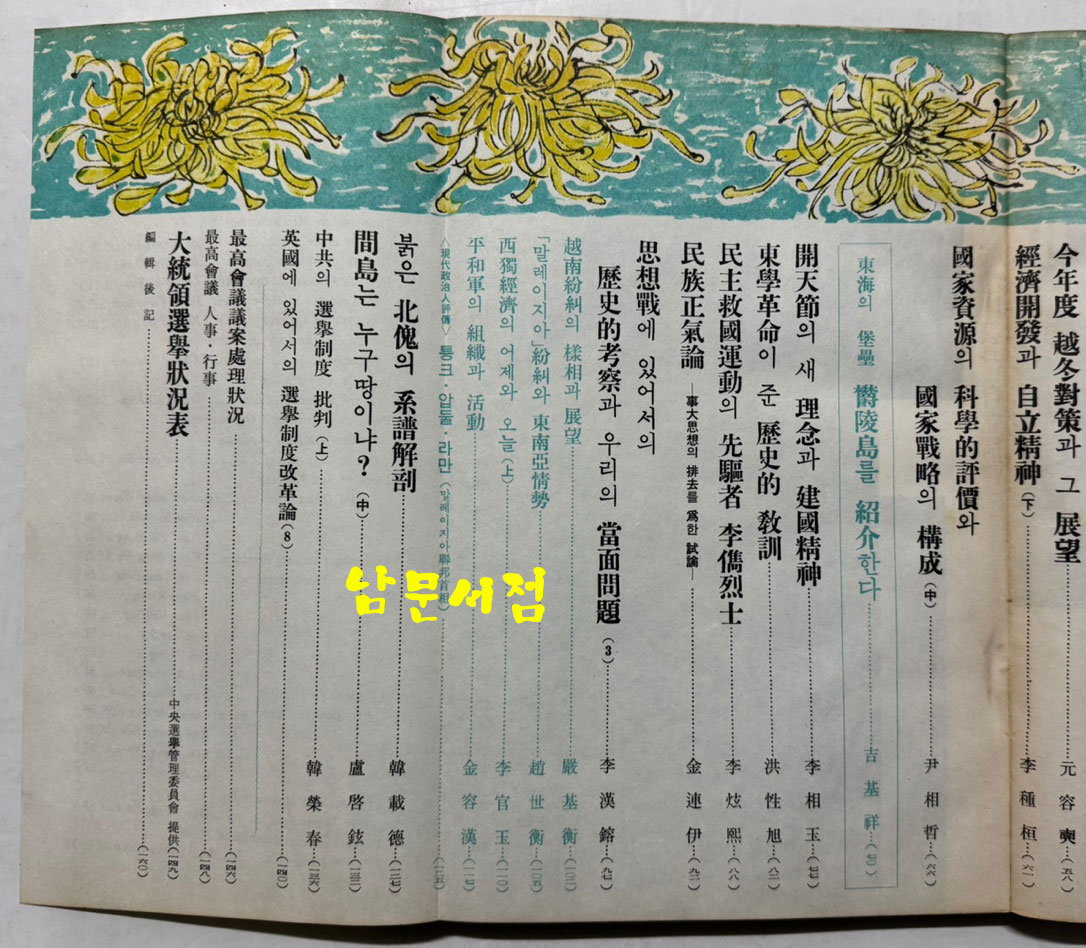 今年度 越冬對策과 그 展望 元容奭 (五八)
經濟開發과 自立精神 (下) 李種桓 (六一)
國家資源의 科學的評價와
國家戰略의 構成 (中) 尹相哲 (六六)
東海의 堡壘 欝陵島를 紹介한다 吉基祥 (七〇)
開天節의 새 理念과 建國精神 李相玉 (七七)
東學革命이 준 歷史的 敎訓 洪性旭 (八二)
民主救國運動의 先驅者 李儁烈士 李炫熙 (八八)
民族正氣論 —事大思想의 排去를 爲한 試論— 金連伊 (九二)
思想戰에 있어서의
歷史的考察과 우리의 當面問題 (3) 李漢鎔 (九七)
越南紛糾의 樣相과 展望 嚴基衡 (一〇二)
「말레이지아」紛糾와 東南亞情勢 趙世衡 (一〇五)
西獨經濟의 어제와 오늘 (上) 李官玉 (一一〇)
平和軍의 組織과 活動 金容漢 (一一七)
〈現代政治人評傳〉 퉁크·압둘·라만 (말레이지아聯邦首相) (一二五)
붉은 北傀의 系譜解剖 韓載德 (一二七)
間島는 누구땅이냐? (中) 盧啓鉉 (一三二)
中共의 選擧制度 批判 (上) 韓榮春 (一三六)
英國에 있어서의 選擧制度改革論 (8) (一四〇)
最高會議議案處理狀況 (一四六)
最高會議 人事·行事 (一四八)
大統領選擧狀況表 中央選擧管理委員會 提供 (一四九)
編輯後記 (一六〇)
남문서점